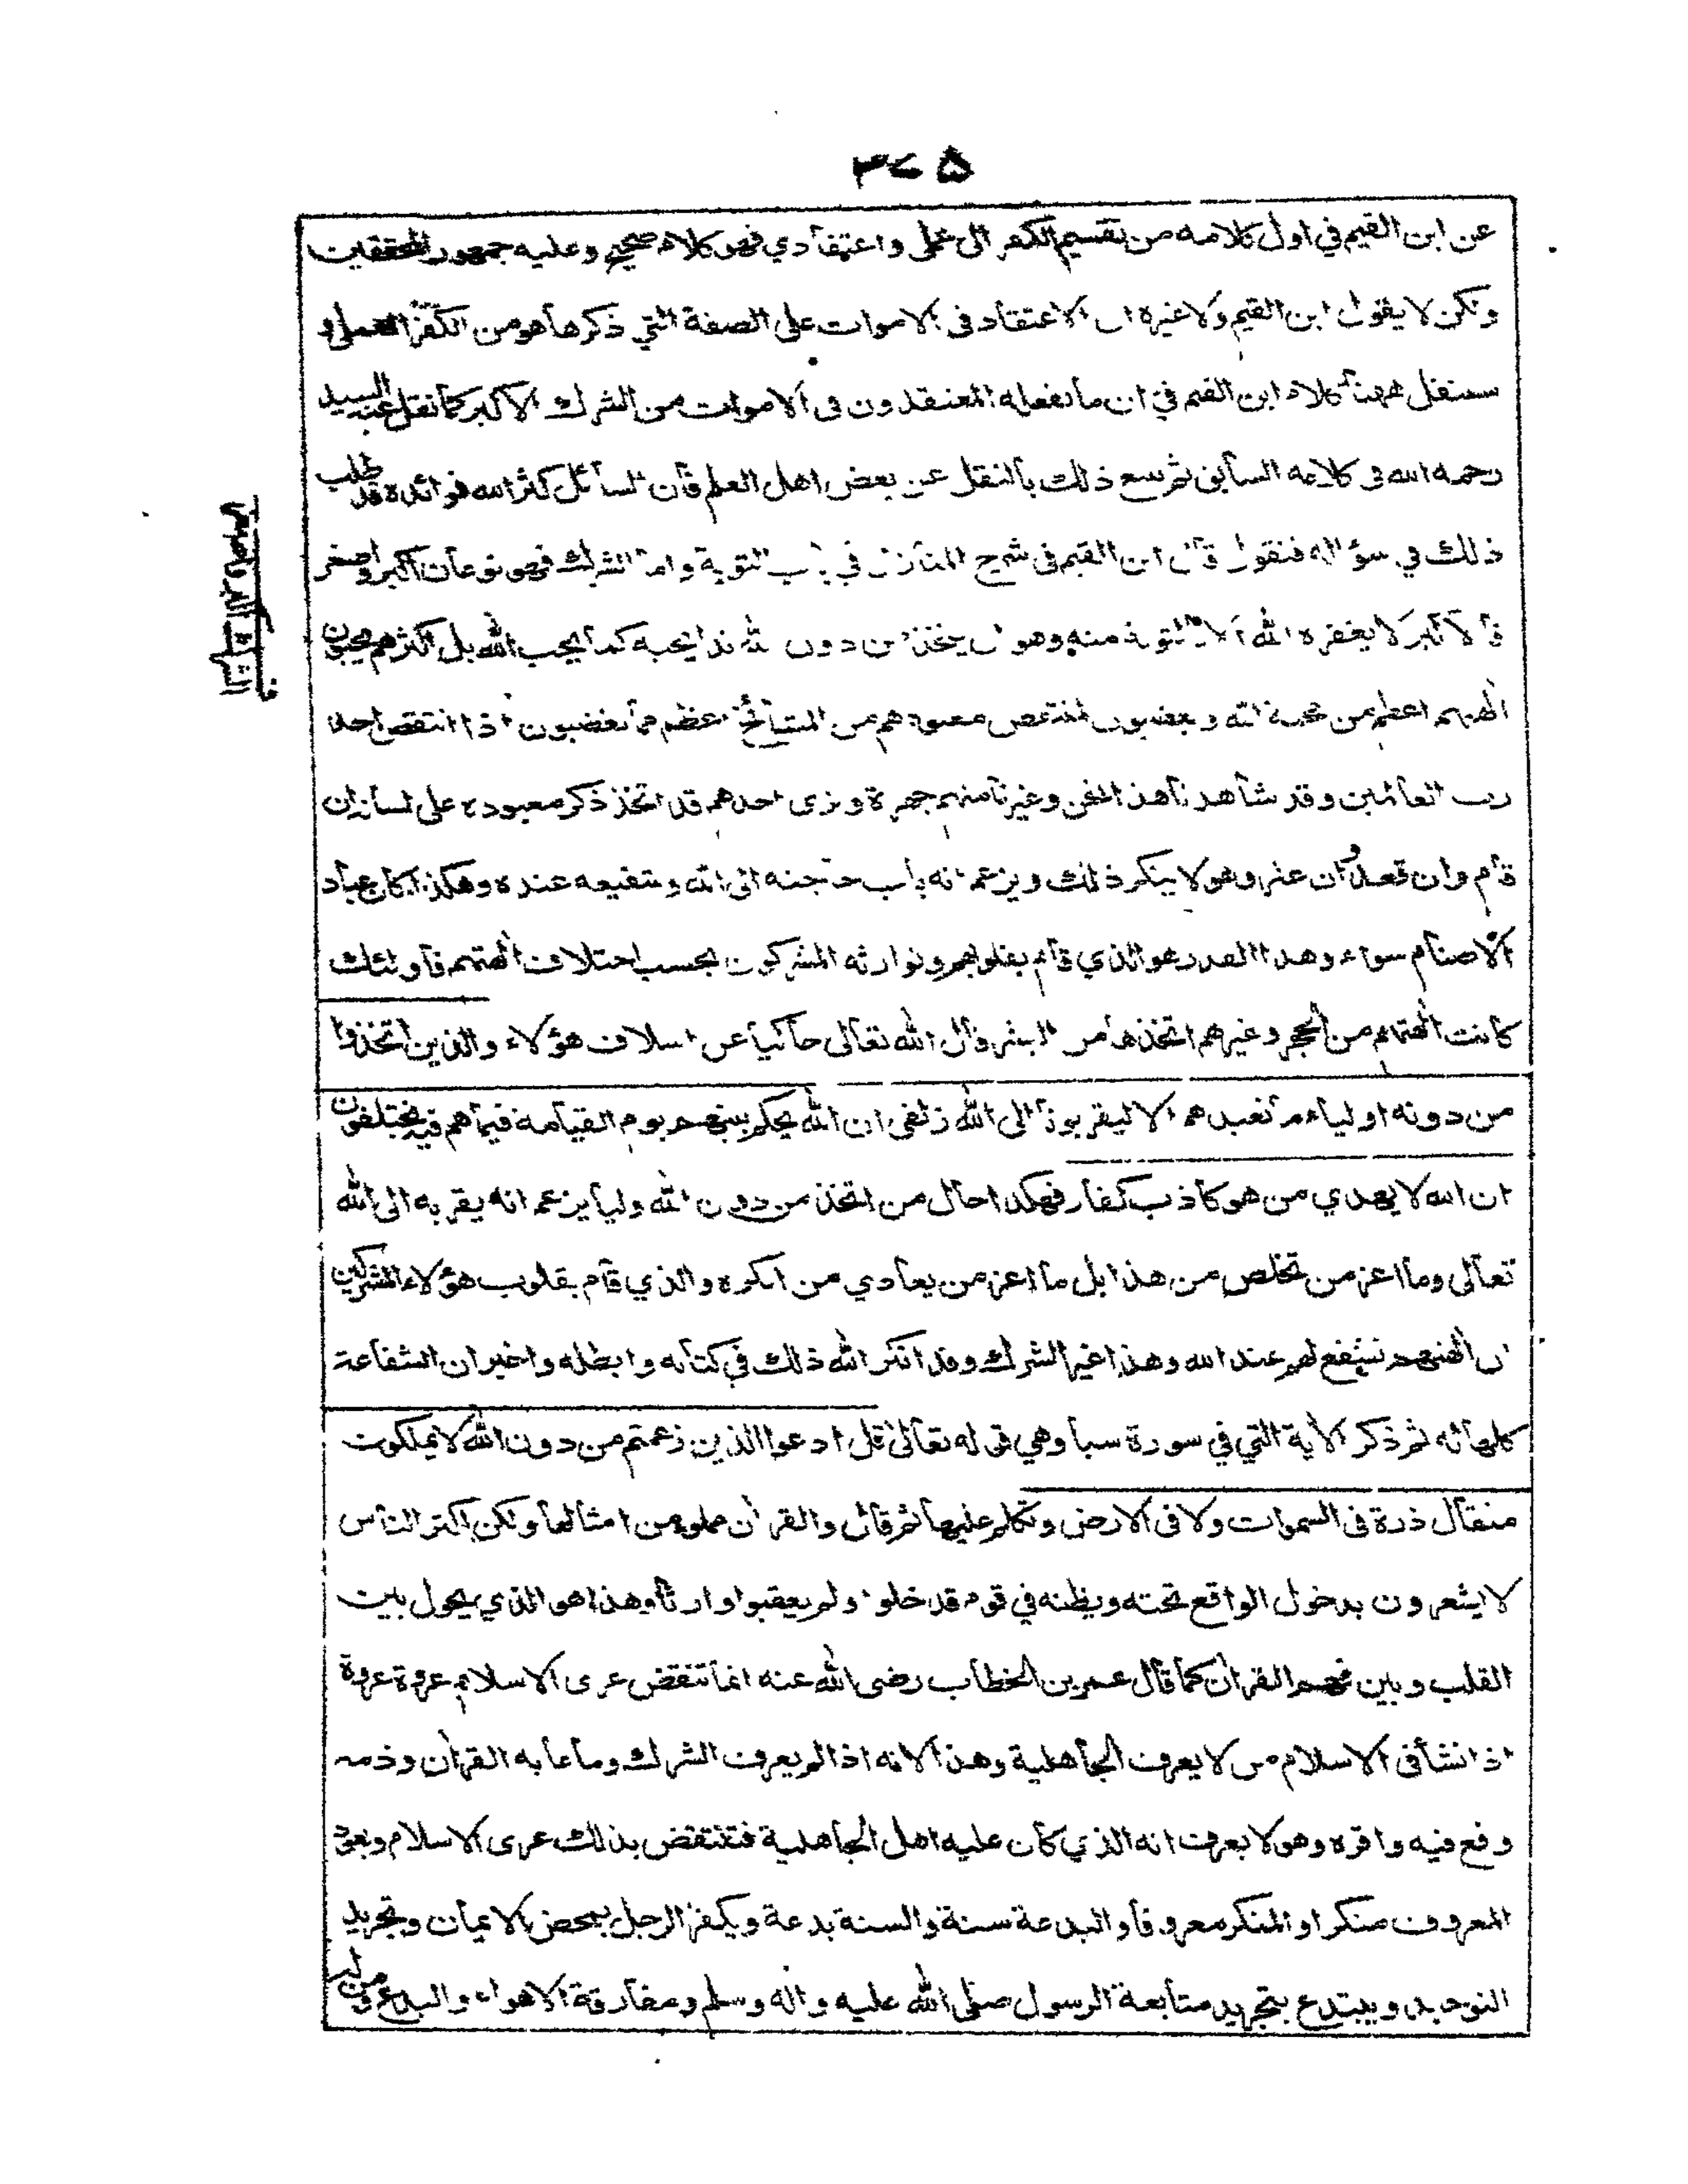 ٣٧٥
عن ابن القيم في اول كلامه من تقسيم الكفر الى عملي واعتقادي فهو كلام صحيح وعليه جمهور المحققين
ولكن لا يقول ابن القيم ولا غيره ان الاعتقاد فى الاموات على الصفة التي ذكرها هو من الكفر العملي و
سننقل ههنا كلام ابن القيم في ان ما يفعله المعتقدون فى الاموات من الشرك الاكبر كما نقل عنه السيد
رحمه الله فى كلامه السابق ثم نتبع ذلك بالنقل عن بعض اهل العلم فان السائل كثر الله فوائده قد طلب
ذلك في سؤاله فنقول قال ابن القيم فى شرح المنازل في باب التوبة واما الشرك فهو نوعان اكبر واصغر
فالاكبر لا يغفره الله الا بالتوبة منه وهو ان يتخذ من دون الله ندا يحبه كما يحب الله بل اكثرهم يحبون
الهتهم اعظم من محبة الله ويغضبون لمنتقص معبودهم من المشائخ اعظم مما يغضبون اذا انتقص احد
رب العالمين وقد شاهدنا هذا نحن وغيرنا منهم جهرة ونرى احدهم قد اتخذ ذكر معبوده على لسانه ان
قام وان قعد وان عثر وهو لا ينكر ذلك ويزعم انه باب حاجته الى الله وشفيعه عنده وهكذا كان عباد
الاصنام سواء وهذا القدر هو الذي قام بقلوبهم وتوارثه المشركون بحسب اختلاف الهتهم فاولئك
كانت الهتهم من الحجر وغيرهم اتخذها من البشر قال الله تعالى حاكيا عن اسلاف هؤلاء والذين اتخذوا
من دونه اولياء ما نعبدهم الا ليقربونا الى الله زلفى ان الله يحكم بينهم يوم القيامة فيما هم فيه يختلفون
ان الله لا يهدي من هو كاذب كفار فهكذا حال من اتخذ من دون الله وليا يزعم انه يقربه الى الله
تعالى وما اعز من تخلص من هذا بل ما اعز من يعادي من انكره والذي قام بقلوب هؤلاء المشركين
ان الهتهم تشفع لهم عند الله وهذا عين الشرك وقد انكر الله ذلك في كتابه وابطله واخبر ان الشفاعة
كلها له ثم ذكر الاية التي في سورة سبأ وهي قوله تعالى قل ادعوا الذين زعمتم من دون الله لا يملكون
مثقال ذرة فى السموات ولا فى الارض وتكلم عليها ثم قال والقرآن مملو من امثالها ولكن اكثر الناس
لا يشعرون بدخول الواقع تحته ويظنه في قوم قد خلوا ولم يعقبوا وارثا وهذا هو الذي يحول بين
القلب وبين فهم القرآن كما قال عمر بن الخطاب رضى الله عنه انما تنقض عرى الاسلام عروة عروة
اذا نشأ فى الاسلام من لا يعرف الجاهلية وهذا لانه اذا لم يعرف الشرك وما عابه القرآن وذمه
وقع فيه واقره وهو لا يعرف انه الذي كان عليه اهل الجاهلية فتنتقض بذلك عرى الاسلام ويعود
المعروف منكرا والمنكر معروفا والبدعة سنة والسنة بدعة ويكفر الرجل بمحض الايمان وتجريد
التوحيد ويبتدع بتجريد متابعة الرسول صلى الله عليه واله وسلم ومفارقة الاهواء والبدع ومن له